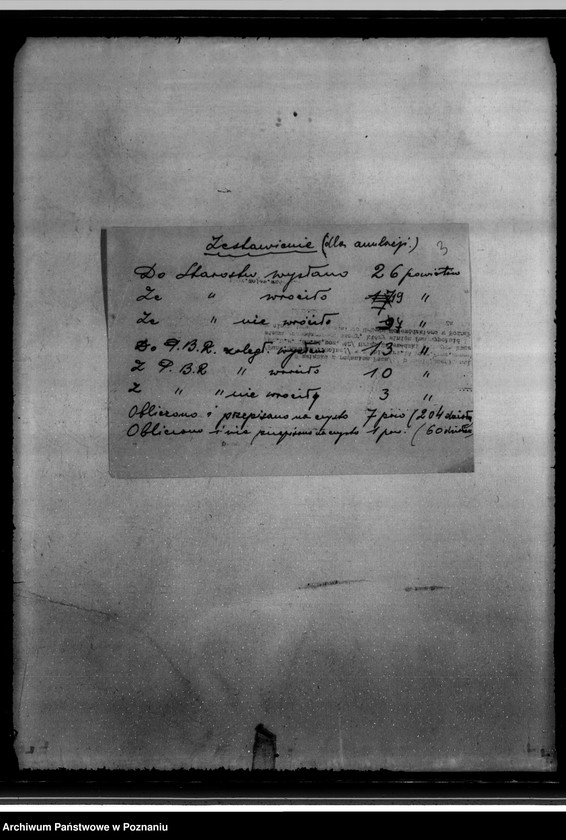 3
Zestawienie (dla ambicji.)
Do Starostw wysłano 26 powiatów
Ze " wróciło 19 "
Ze " nie wróciło 7 "
Do P.B.R. wysłano 13 "
Z P.B.R " wróciło 10 "
Z " " nie wróciło 3 "
Obliczono i przepisano na czysto 7 pow (204
Obliczono i nie przepisano na czysto 1 pow. (60
Archiwum Państwowe w Poznaniu